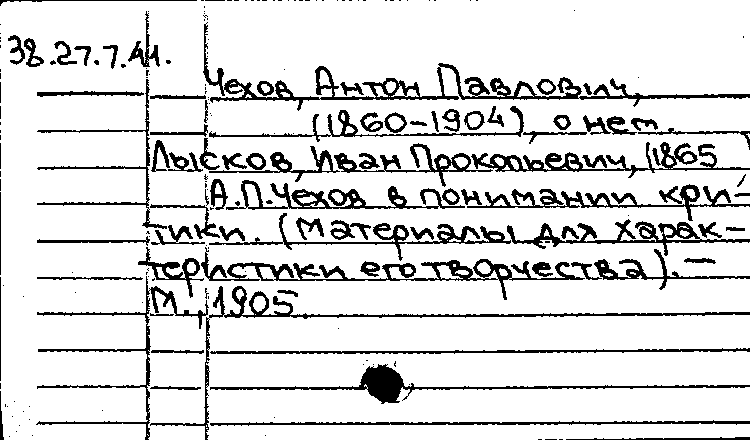 38.27.7.41.
Чехов, Антон Павлович,
(1860-1904), о нем.
Лысков, Иван Прокопьевич, (1865 )
А.П.Чехов в понимании кри-
тики. (Материалы для харак-
теристики его творчества). —
М., 1905.